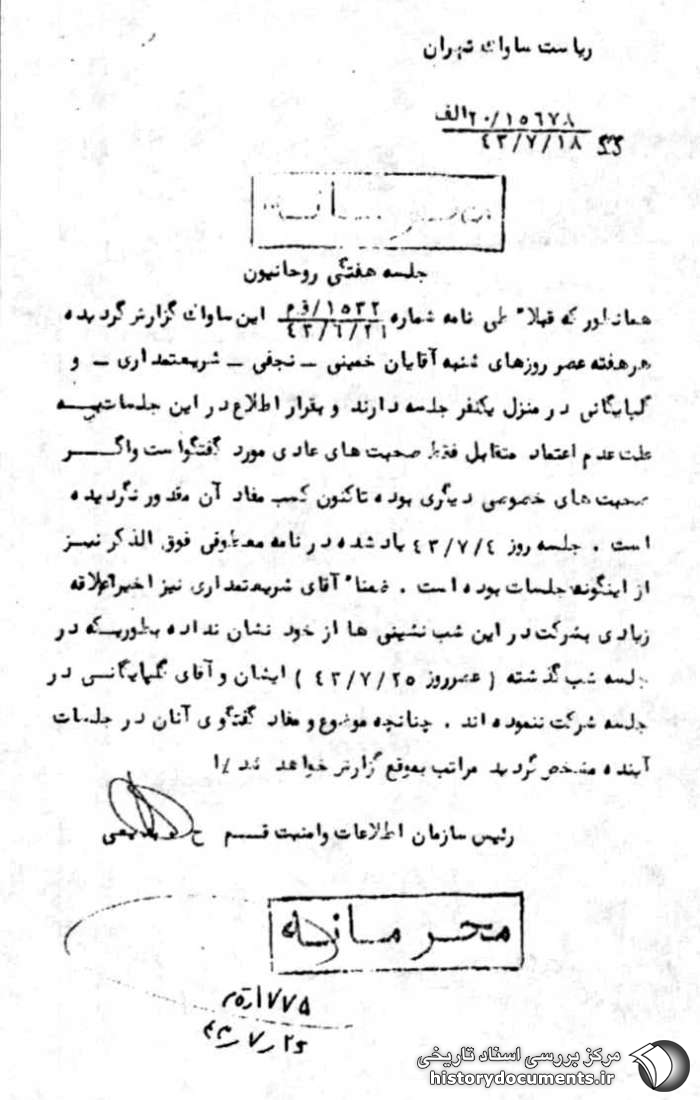 ریاست ساواك تهران
۲۰/۱۵۶۷۸الف
۴۳/۷/۱۸
محرمانه
جلسه هفتگی روحانیون
همانطور که قبلا" طی نامه شماره ۱۵۳۲/ق م این ساواك گزارش گردیده
۴۳/۶/۳۱
هر هفته عصر روزهای شنبه آقایان خمینی ـ نجفی ـ شریعتمداری ـ و
گلپایگانی در منزل یکنفر جلسه دارند و بقرار اطلاع در این جلسات به
علت عدم اعتماد متقابل فقط صحبت های عادی مورد گفتگو است و اگر
صحبت های خصوصی دیگری بوده تاکنون کسب مفاد آن مقدور نگردیده
است . جلسه روز ۴۳/۷/۴ یاد شده در نامه معطوفی فوق الذکر نیز
از اینگونه جلسات بوده است . ضمنا" آقای شریعتمداری نیز اخیرا علاقه
زیادی بشرکت در این شب نشینی ها از خود نشان نداده بطوریکه در
جلسه شب گذشته ( عصر روز ۴۳/۷/۲۵ ) ایشان و آقای گلپایگانی در
جلسه شرکت ننموده اند . چنانچه موضوع و مفاد گفتگوی آنان در جلسات
آینده مشخص گردید مراتب بموقع گزارش خواهد شد /ا
رئیس سازمان اطلاعات وامنیت قسم ح
محرمانه
۱۷۷۵/ق م
۴۳/۷/۲۶
مرکز بررسی اسناد تاریخی
historydocuments.ir